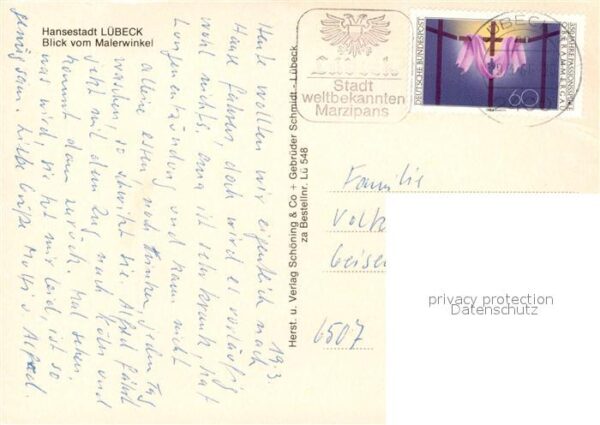 Hansestadt LÜBECK
Blick vom Malerwinkel
19.3
Heute wollten wir eigentlich nach
Hause fahren, doch wird es vorläufig
wohl nichts. Oma ist sehr krank hat
Lungenentzündung und kann nicht
alleine essen noch trinken, jeden Tag
waschen so schwitzt sie. Alfred fährt
jetzt mit dem Zug nach Köln und
kommt dann zurück. Mal sehen
was wird, sie tut mir leid, ist so
genügsam. Liebe Grüße Mutti u. Alfred.
Herst. u. Verlag Schöning & Co + Gebrüder Schmidt - Lübeck
za Bestellnr. Lü 548
Lübeck
Stadt
weltbekannten
Marzipans
DEUTSCHE BUNDESPOST
60
LÜBECK
Familie
Volk
Geisen
6507
privacy protection
Datenschutz